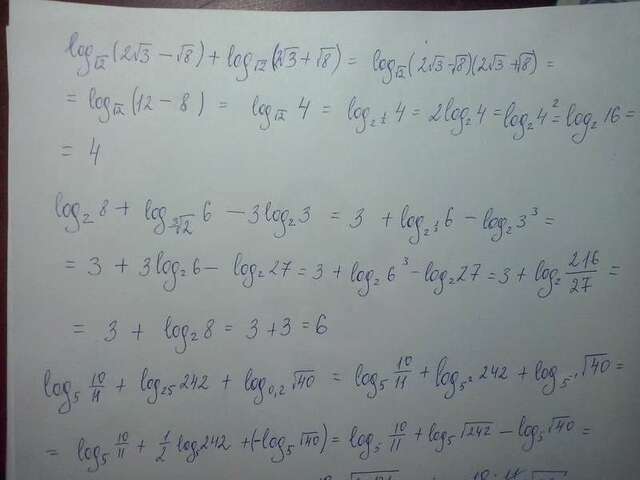 log_√2 (2√3 − √8) + log_√2 (2√3 + √8) = log_√2 (2√3 − √8)(2√3 + √8) =
= log_√2 (12 − 8) = log_√2 4 = log_2^½ 4 = 2log_2 4 = log_2 4² = log_2 16 =
= 4
log_2 8 + log_∛2 6 − 3log_2 3 = 3 + log_2^⅓ 6 − log_2 3³ =
= 3 + 3log_2 6 − log_2 27 = 3 + log_2 6³ − log_2 27 = 3 + log_2 216/27 =
= 3 + log_2 8 = 3 + 3 = 6
log_5 10/11 + log_25 242 + log_0,2 √40 = log_5 10/11 + log_5² 242 + log_5⁻¹ √40 =
= log_5 10/11 + 1/2 log_5 242 + (−log_5 √40) = log_5 10/11 + log_5 √242 − log_5 √40 =